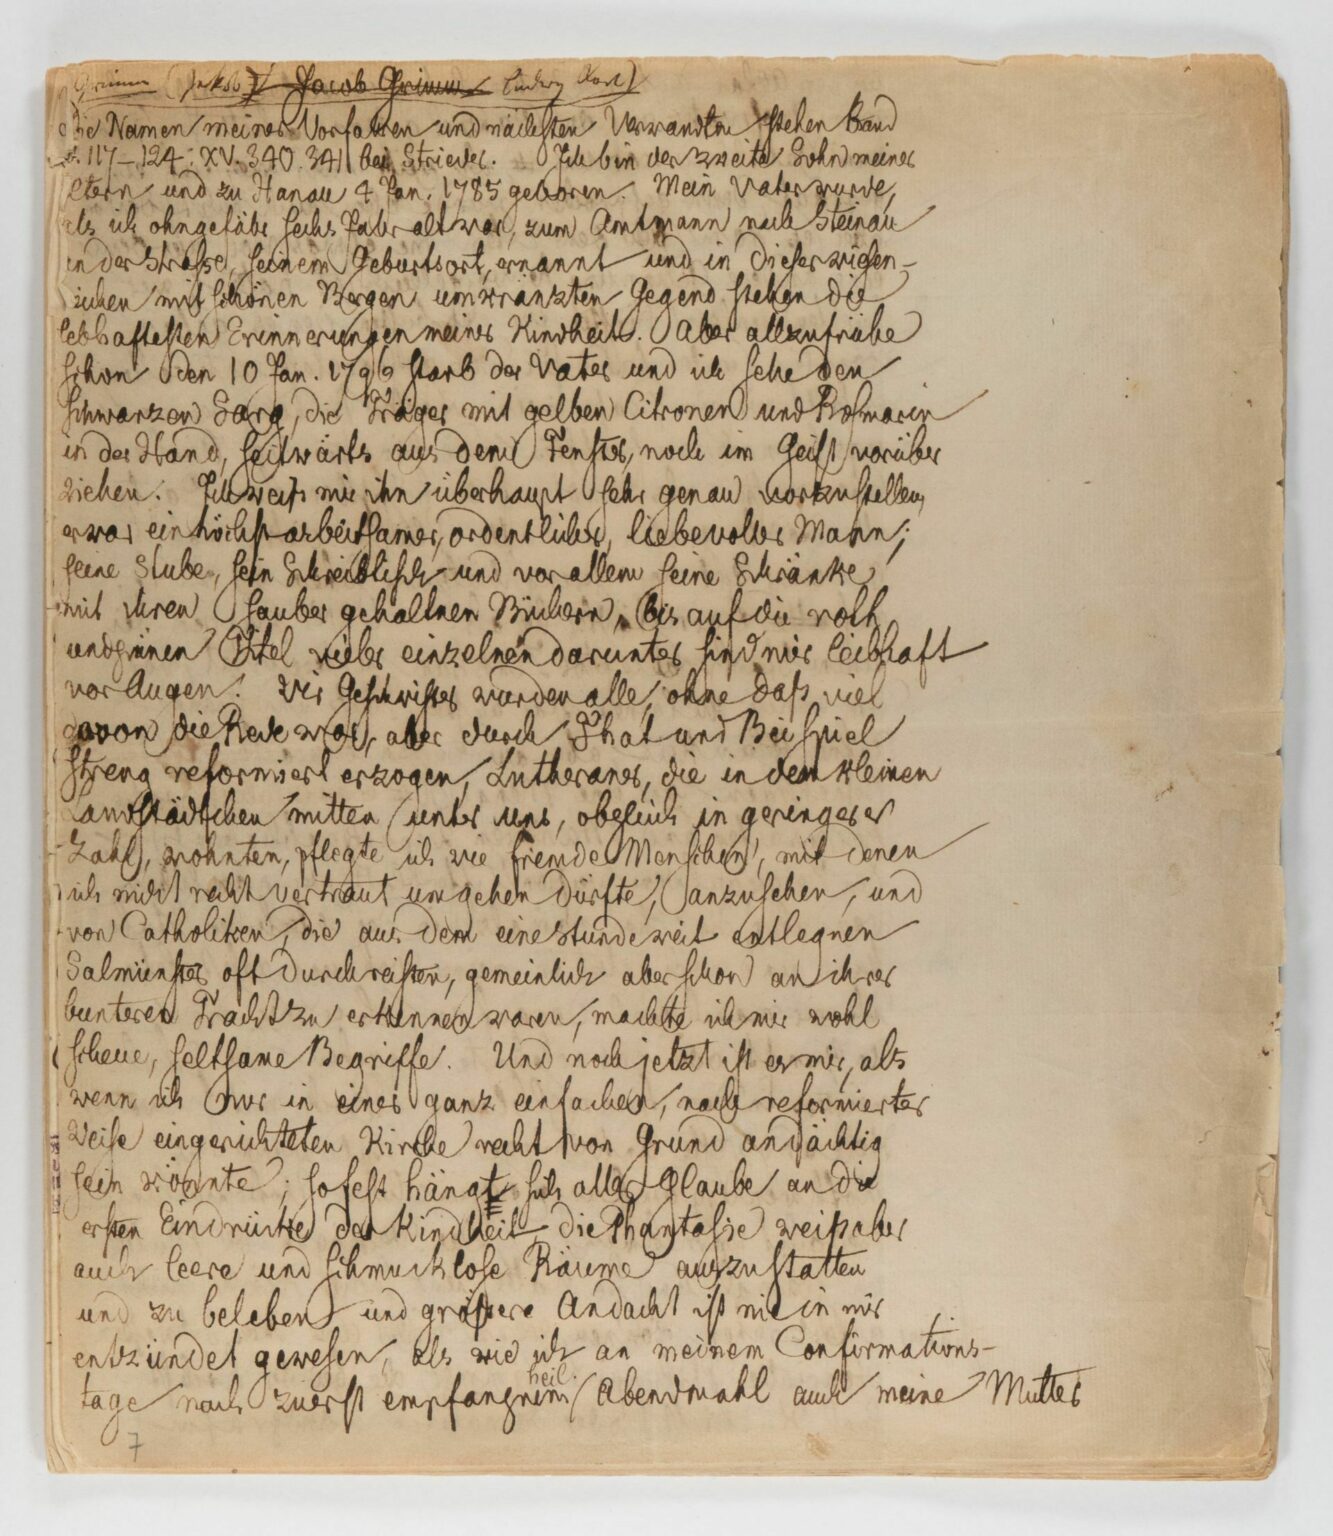 Grimm (Jakob) Jacob Grimm Ludwig Karl)
die Namen meiner Vorfahren und nächsten Verwandten stehen Band
117–124. XV. 340. 341 bei Strieder. Ich bin der zweite Sohn meiner
eltern und zu Hanau 4 Jan. 1785 geboren. Mein Vater wurde,
als ich ohngefähr sechs Jahr alt war, zum Amtmann nach Steinau
in der Strasse, seinem Geburtsort, ernannt und in dieser wiesen-
reichen mit schönen Bergen umkränzten Gegend stehen die
lebhaftesten Erinnerungen meiner Kindheit. Aber allzufrühe
schon den 10 Jan. 1796 starb der Vater und ich sehe den
schwarzen Sarg, die Träger mit gelben Citronen und Rosmarin
in der Hand, seitwärts aus dem Fenster, noch im Geist vorüber
ziehen. Ich weiß mir ihn überhaupt sehr genau vorzustellen,
er war ein höchst arbeitsamer, ordentlicher, liebevoller Mann;
seine Stube, sein Schreibtisch und vor allem seine Schränke
mit ihren sauber gehaltnen Büchern, bis auf die roth
und grünen Titel vieler einzelnen darunter sind mir leibhaft
vor Augen. Wir Geschwister wurden alle, ohne daß viel
davon die Rede war, aber durch That und Beispiel
streng reformiert erzogen, Lutheraner, die in dem kleinen
Landstädtchen mitten unter uns, obgleich in geringerer
Zahl, wohnten, pflegte ich wie fremde Menschen, mit denen
ich nicht recht vertraut umgehen dürfte, anzusehen, und
von Catholiken, die aus dem eine Stunde weit entlegnen
Salmünster oft durchreisten, gemeinlich aber schon an ihrer
bunteren Tracht zu erkennen waren, machte ich mir wohl
scheue, seltsame Begriffe. Und noch jetzt ist es mir, als
wenn ich nur in einer ganz einfachen, nach reformierter
Weise eingerichteten Kirche recht von Grund andächtig
sein könnte; so fest hängt sich aller Glaube an die
ersten Eindrücke der Kindheit, die Phantasie weiß aber
auch leere und schmucklose Räume auszustatten
und zu beleben und größere Andacht ist nie in mir
entzündet gewesen, als wie ich an meinem Confirmations-
heil.
tage nach zuerst empfangnem Abendmahl auch meine Mutter
7